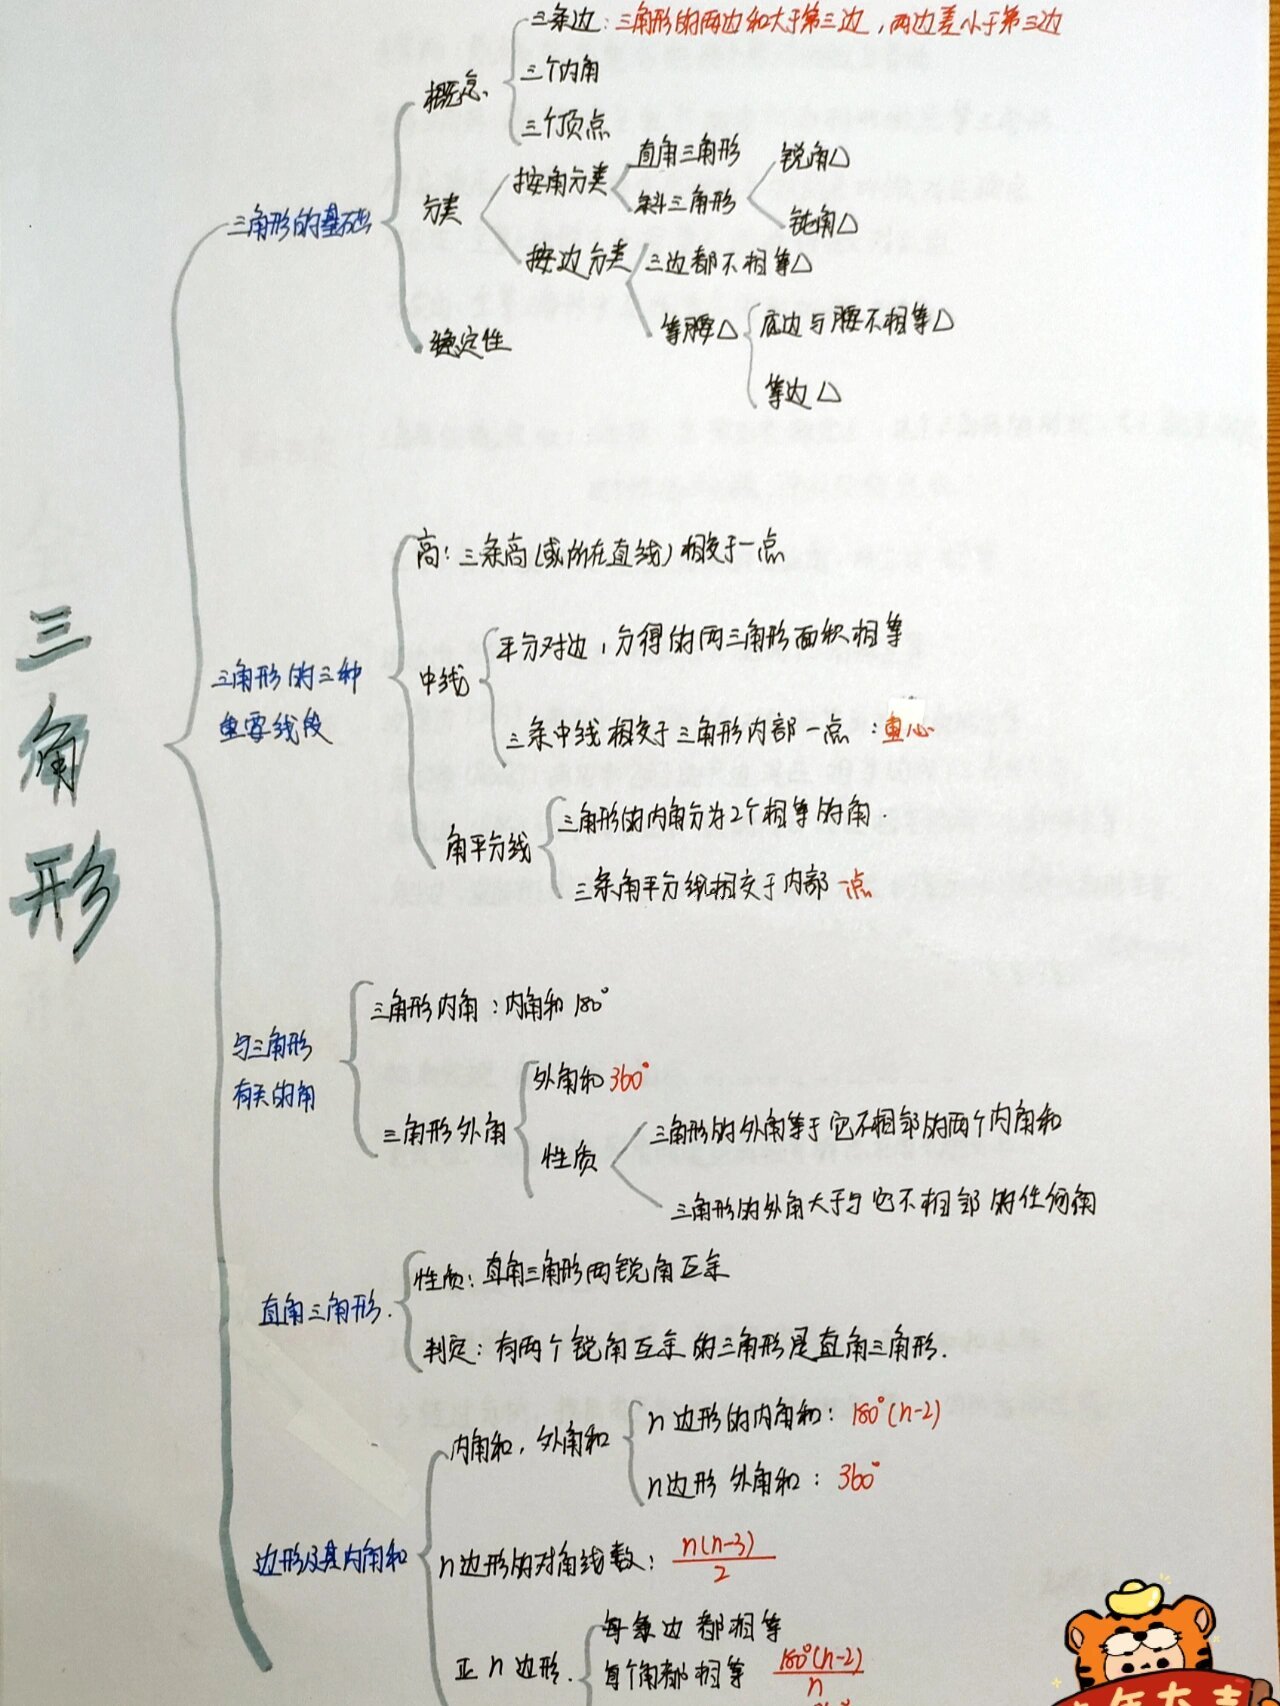 三角形
三角形的基础
概念
三条边：三角形的两边和大于第三边，两边差小于第三边
三个内角
三个顶点
分类
按角分类
直角三角形
斜三角形
锐角△
钝角△
按边分类
三边都不相等△
等腰△
底边与腰不相等△
等边△
稳定性
三角形的三种
重要线段
高：三条高(或所在直线)相交于一点
中线
平分对边，分得的两三角形面积相等
三条中线相交于三角形内部一点：重心
角平分线
三角形的内角分为2个相等的角.
三条角平分线相交于内部一点
与三角形
有关的角
三角形内角：内角和180°
三角形外角
外角和360°
性质
三角形的外角等于它不相邻的两个内角和
三角形的外角大于与它不相邻的任何角
直角三角形.
性质：直角三角形两锐角互余
判定：有两个锐角互余的三角形是直角三角形.
边形及其内角和
内角和，外角和
n边形的内角和：180°(n-2)
n边形外角和：360°
n边形的对角线数：n(n-3)/2
正n边形.
每条边都相等
每个角都相等 180°(n-2)/n